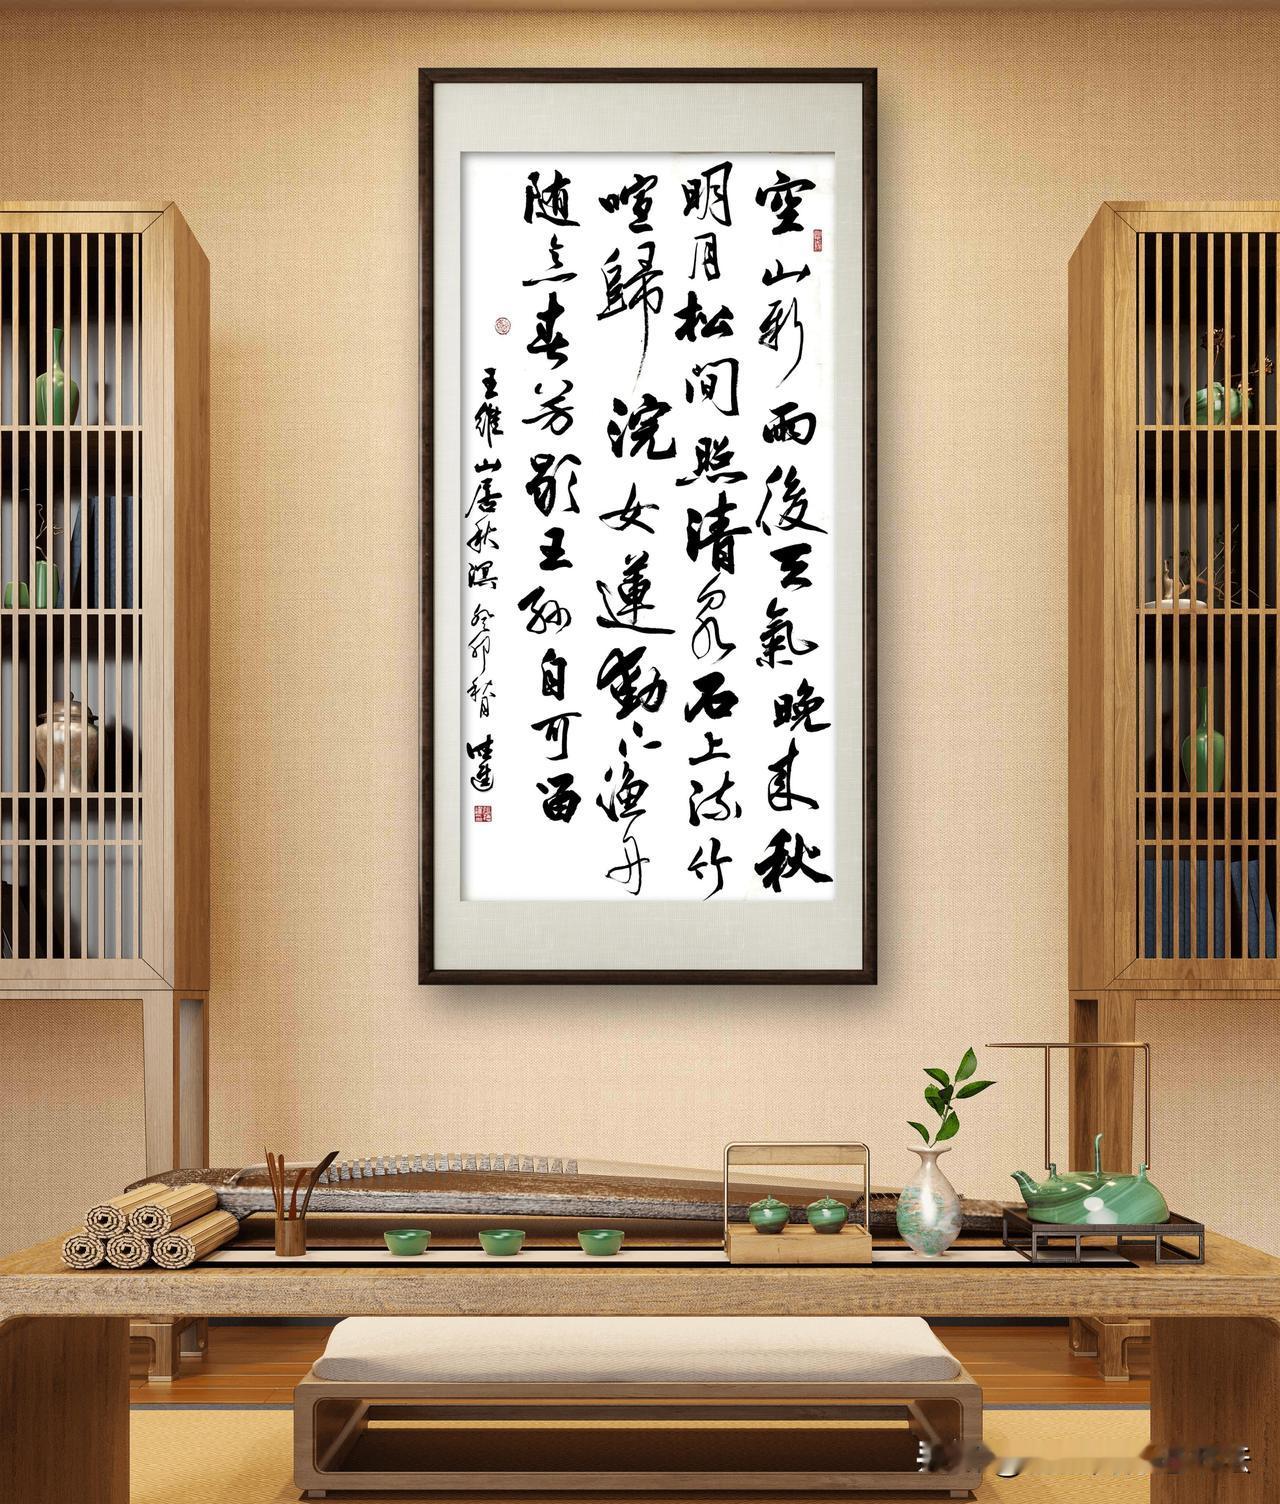 空山新雨後天氣晚来秋
明月松间照清泉石上流竹
喧歸浣女蓮動下渔舟
随意春芳歇王孙自可留
王维山居秋溟癸卯秋月